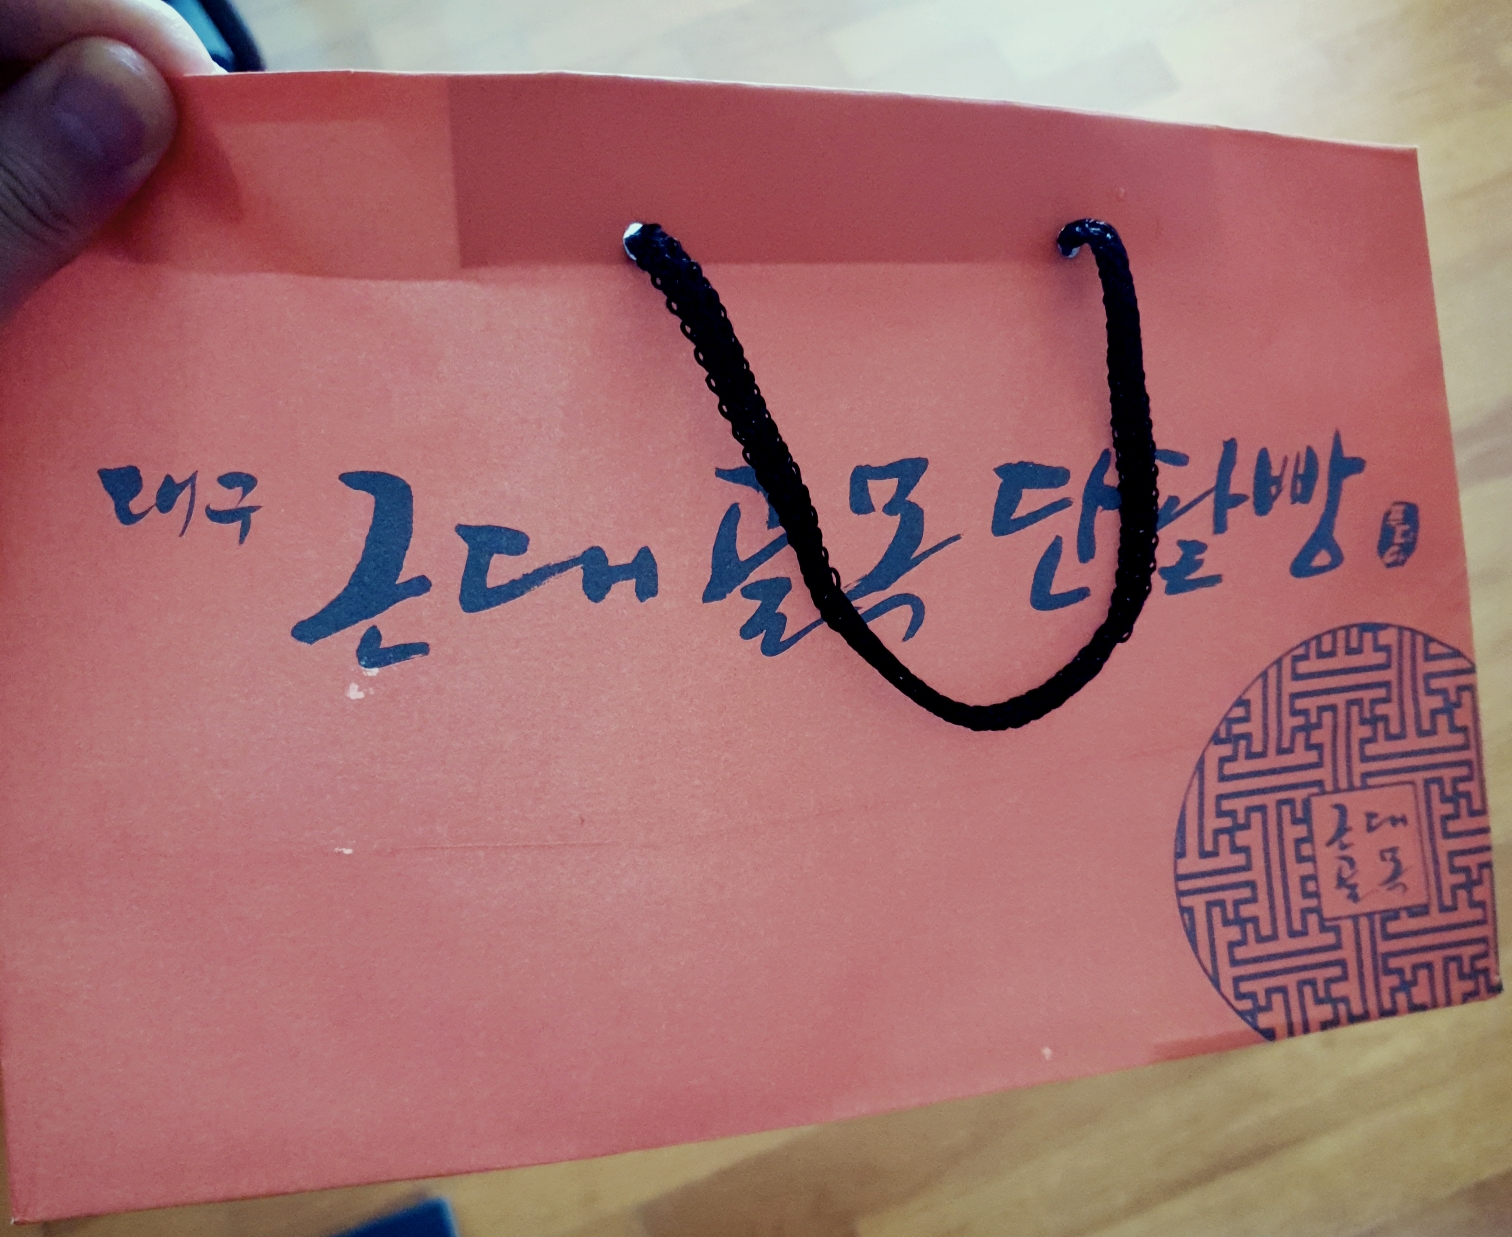 대구 근대골목단팥빵
근대
골목